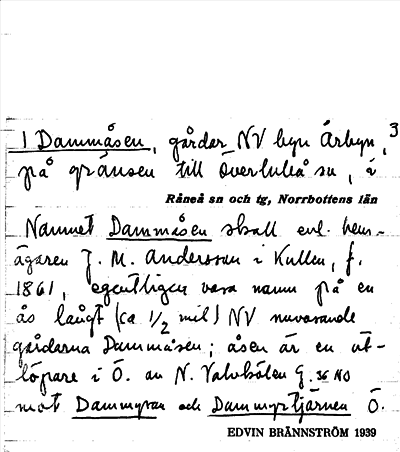 3
1 Dammåsen, gårdar NV byn Årbyn,
på gränsen till Överluleå sn, i
Råneå sn och tg, Norrbottens län
Namnet Dammåsen skall enl. hem-
ägaren J. M. Andersson i Kullen, f.
1861, egentligen vara namn på en
ås långt (ca 1/2 mil) NV nuvarande
gårdarna Dammåsen; åsen är en ut-
löpare i Ö. av N. 36 NO
mot Dammyran och Dammyrtjärnen Ö.
EDVIN BRÄNNSTRÖM 1939